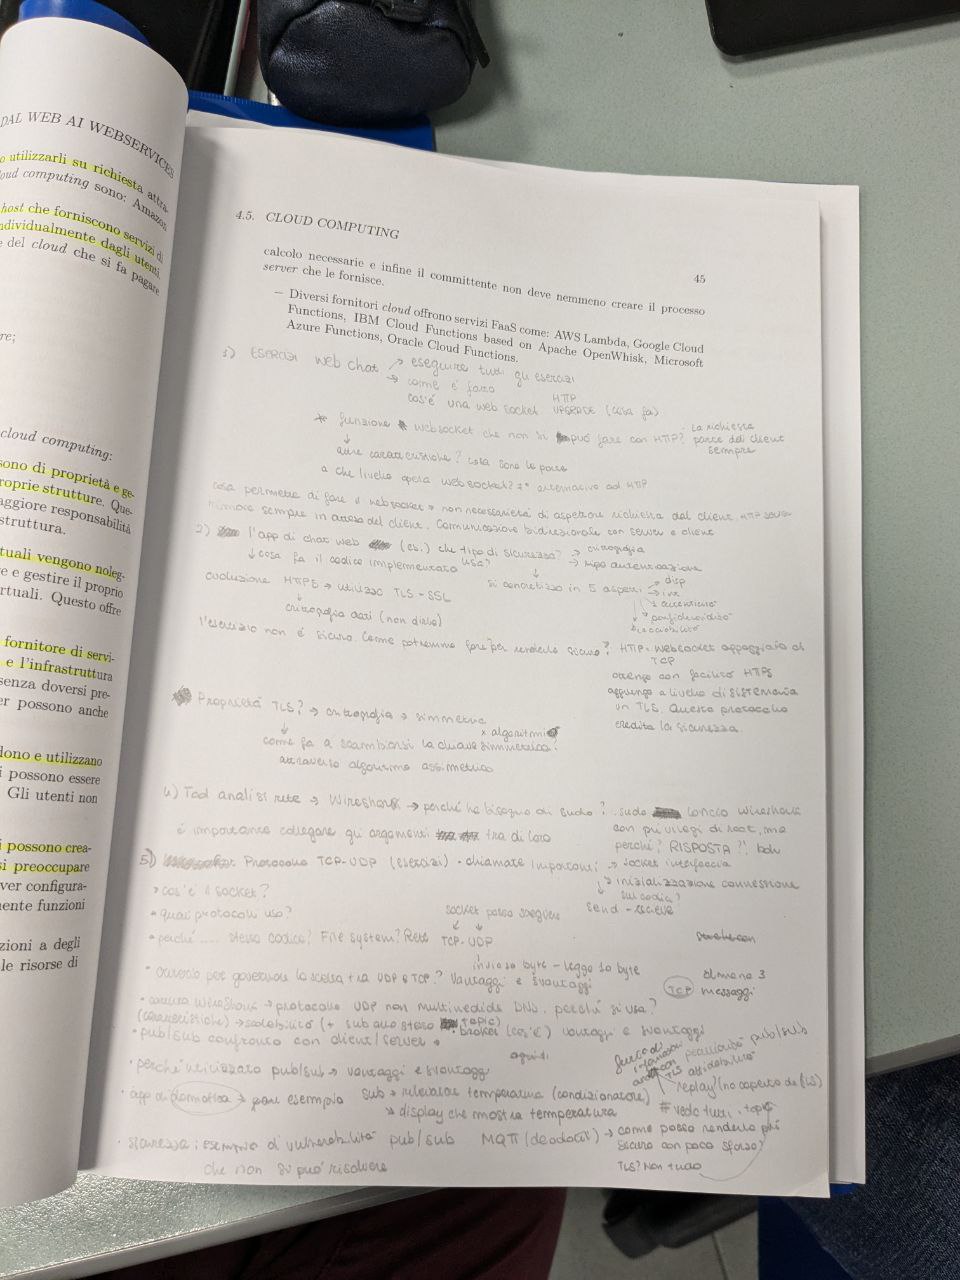 DAL WEB AI WEBSERVICES
o utilizzarli su richiesta attra-
oud computing sono: Amazon
host che forniscono servizi di
ndividualmente dagli utenti.
e del cloud che si fa pagare
re;
cloud computing:
sono di proprietà e ge-
roprie strutture. Que-
aggiore responsabilità
struttura.
tuali vengono noleg-
e e gestire il proprio
rtuali. Questo offre
fornitore di servi-
e l'infrastruttura
senza doversi pre-
er possono anche
dono e utilizzano
i possono essere
Gli utenti non
i possono crea-
si preoccupare
ver configura-
mente funzioni
zioni a degli
le risorse di
4.5. CLOUD COMPUTING
45
calcolo necessarie e infine il committente non deve nemmeno creare il processo
server che le fornisce.
– Diversi fornitori cloud offrono servizi FaaS come: AWS Lambda, Google Cloud
Functions, IBM Cloud Functions based on Apache OpenWhisk, Microsoft
Azure Functions, Oracle Cloud Functions.
ESERCIZI Web chat → eseguire tutti gli esercizi
→ come è fatto
cos'è una web socket HTTP UPGRADE (cosa fa)
* funzione websocket che non si può fare con HTTP? La richiesta
parte dal client
sempre
↓ altre caratteristiche? cosa sono le porte
a che livello opera websocket? alternativo ad HTTP
cosa permette di fare il websocket → non necessarietà di aspettare richiesta dal client, HTTP server
rimane sempre in attesa del client. Comunicazione bidirezionale con server e client
2) l'app di chat web (es.) che tipo di sicurezza? → crittografia
usa? → tipo autenticazione
↓ cosa fa il codice implementato
si concretizza in 5 aspetti → disp
→ int
autenticità
evoluzione HTTPS → utilizzo TLS - SSL
↓
crittografia dati
l'esercizio non è sicuro. Come potremmo fare per renderlo sicuro? HTTP-websocket appoggiato al
TCP
ottengo con facilità HTTPS
aggiungo a livello di sistema
un TLS. Questo protocollo
eredita la sicurezza.
Proprietà TLS? → crittografia → simmetrica
x algoritmi
↓
come fa a scambiarsi la chiave simmetrica?
attraverso algoritmo assimetrico
4) Tool analisi rete → Wireshark → perché ha bisogno di sudo? sudo lancio Wireshark
con privilegi di root, ma
perché? RISPOSTA?!
è importante collegare gli argomenti tra di loro
5) Protocollo TCP-UDP (esercizi) · chiamate importanti → socket interfaccia
↓ inizializzazione connessione
sul codice?
send - receive
· cos'è il socket?
· quali protocolli uso?
socket posso scegliere
↙ ↓
TCP-UDP
· perché ..... stesso codice? File system? Rete
inviato byte - leggo 10 byte
· criterio per governare la scelta tra UDP e TCP? Vantaggi e svantaggi
TCP
almeno 3
messaggi
· cattura wireshark → protocollo UDP non multimediale DNS. perché si usa?
(caratteristiche) → scalabilità (+ sub allo stesso topic)
· pub/sub confronto con client/server · broker (cos'è) vantaggi e svantaggi
· perché utilizzato pub/sub → vantaggi e svantaggi
pub/sub
TLS affidabilità
replay
# vedo tutti i topic
· app di domotica → fare esempio sub → rilevatore temperatura (condizionatore)
→ display che mostra temperatura
· sicurezza: esempio di vulnerabilità pub/sub MQTT → come posso renderlo più
sicuro con poco sforzo?
TLS? Non tutto
che non si può risolvere